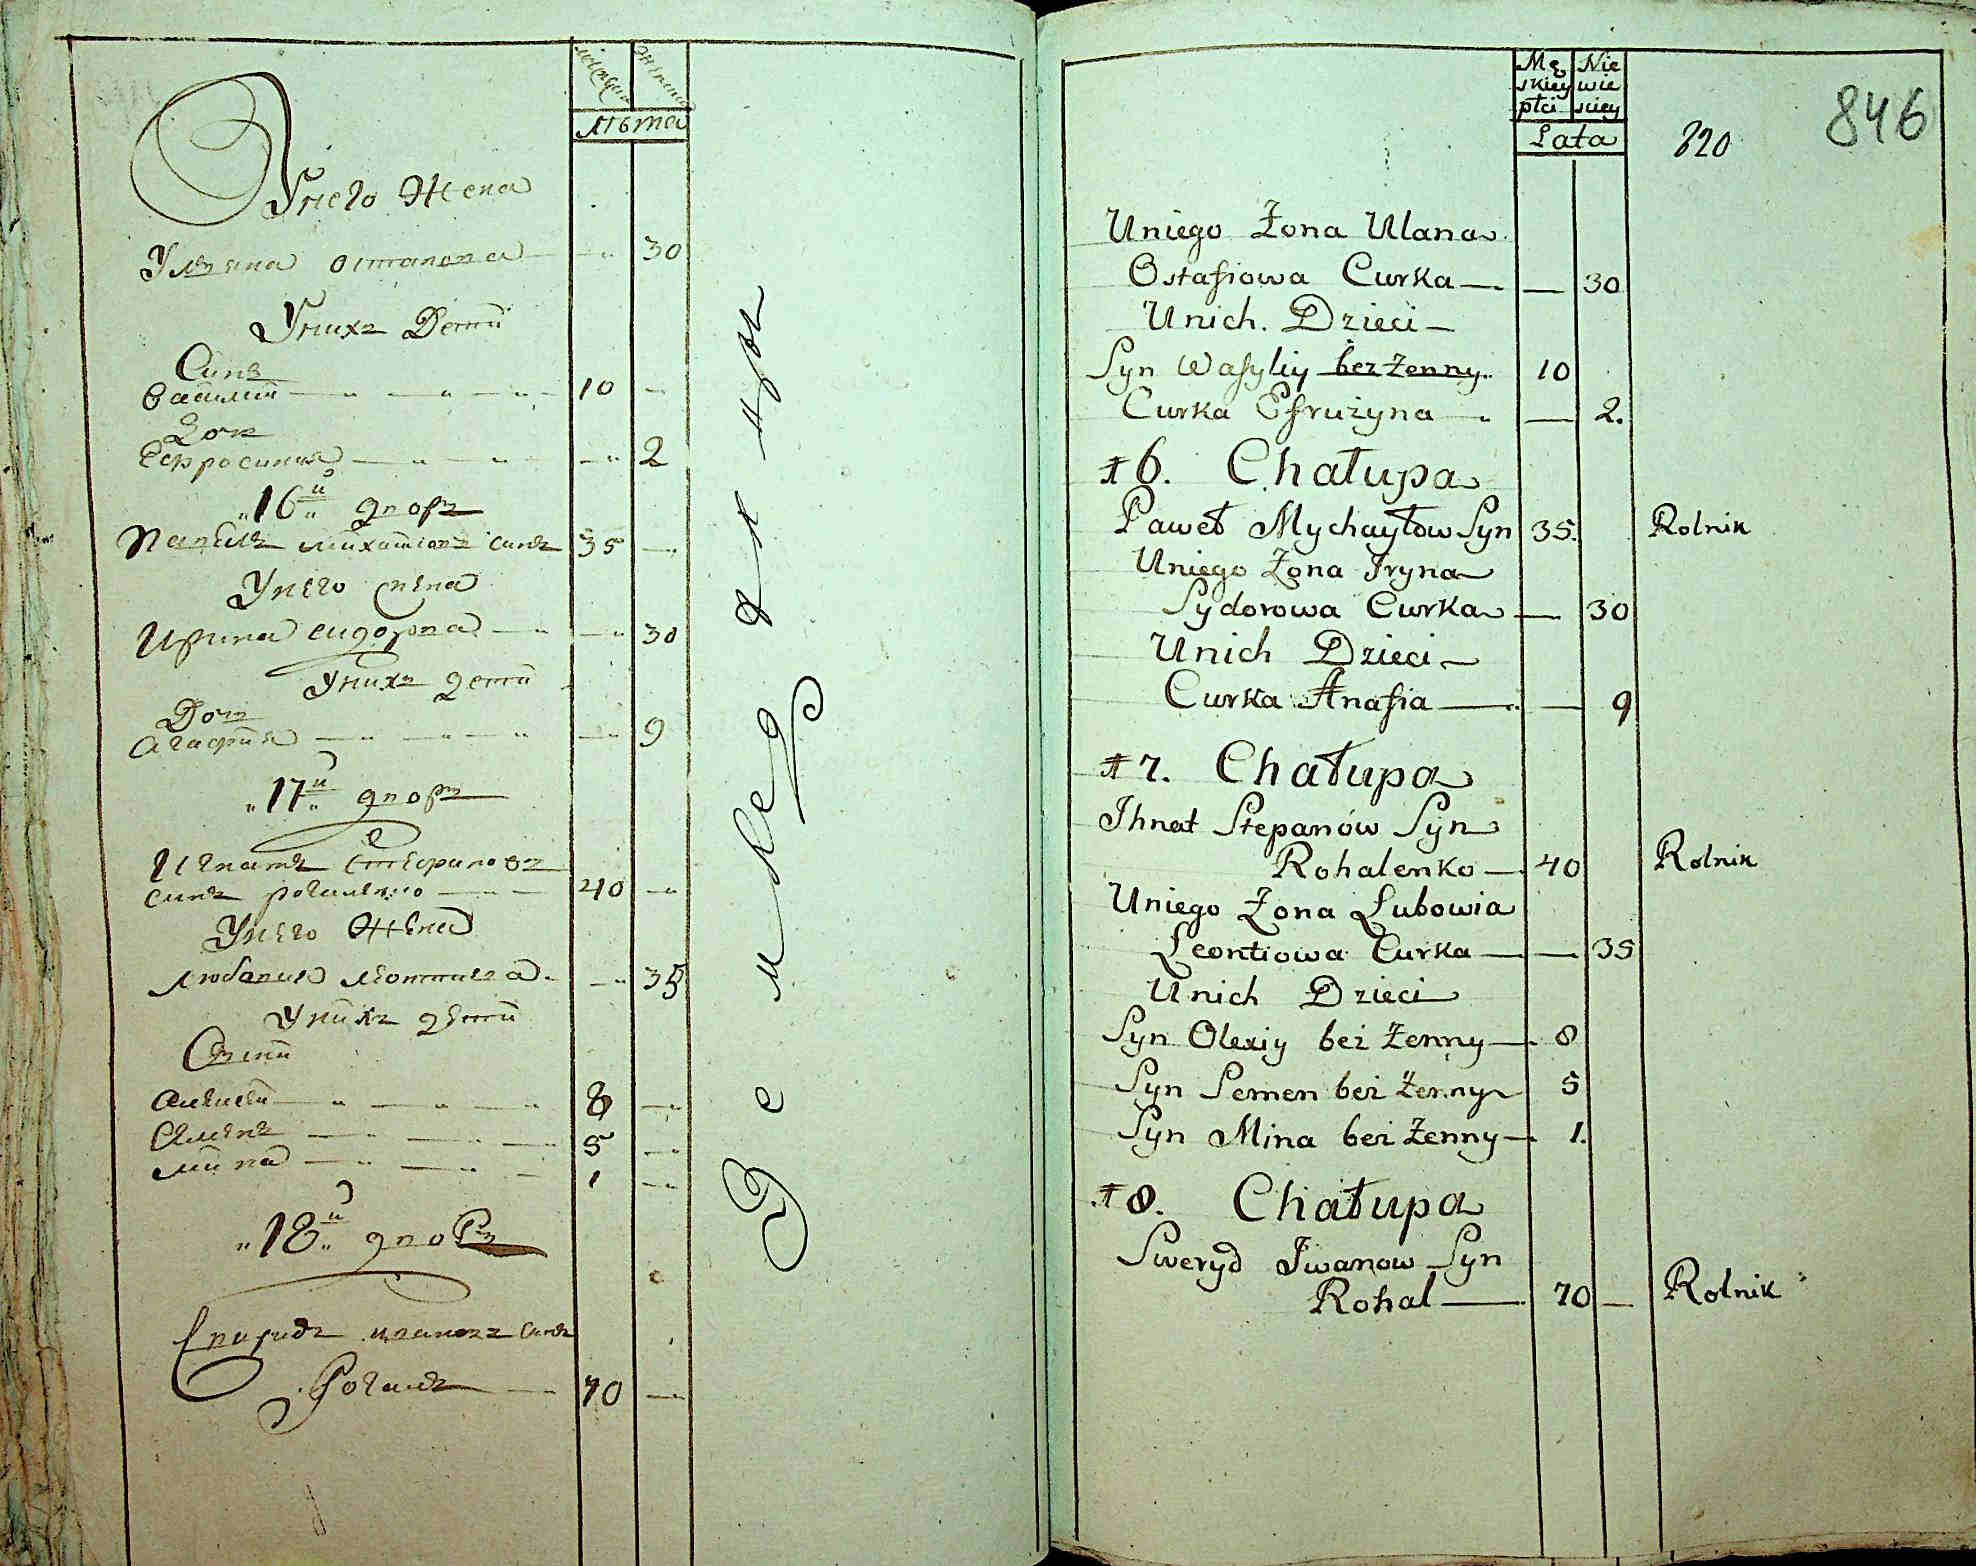 Лѣта
Унего Жена
Уляна Остапова 30
Уних Дети
Синъ
Василий 10
Доч
Ефросиния 2
16й двор
Павилъ Михайлов синъ 35
Унего жена
Ирина Сидорова 30
Уних дети
Доч
Агафия 9
17й двор
Игнатъ
синъ Рогаленко 40
Унего Жена
Любовия Леонтиева 35
Уних дети
Сини
Алексей 8
Семенъ 5
Мина 1
18й двор
Свиридъ Иванов синъ
Рогаль 70
Земледелци
Mę Nie
skiey wie
płci sciey
Lata
820
846
Uniego Żona Ulana
Ostafiowa Curka — — 30
Unich. Dzieci —
Syn Wasyliy bez Żenny 10
Curka Efrużyna — — 2.
16. Chałupa
Paweł Mychayłow Syn 35. Rolnik
Uniego Żona Iryna
Sydorowa Curka — 30
Unich Dzieci —
Curka Anafia — — 9
17. Chałupa
Ihnat Stepanów Syn
Rohalenko — 40 Rolnik
Uniego Żona Lubowia
Leontiowa Curka — — 35
Unich Dzieci
Syn Olexiy bez Żenny — 8
Syn Semen bez Żenny 5
Syn Mina bez Żenny — 1.
18. Chałupa
Sweryd Iwanow Syn
Rohal — 70 — Rolnik